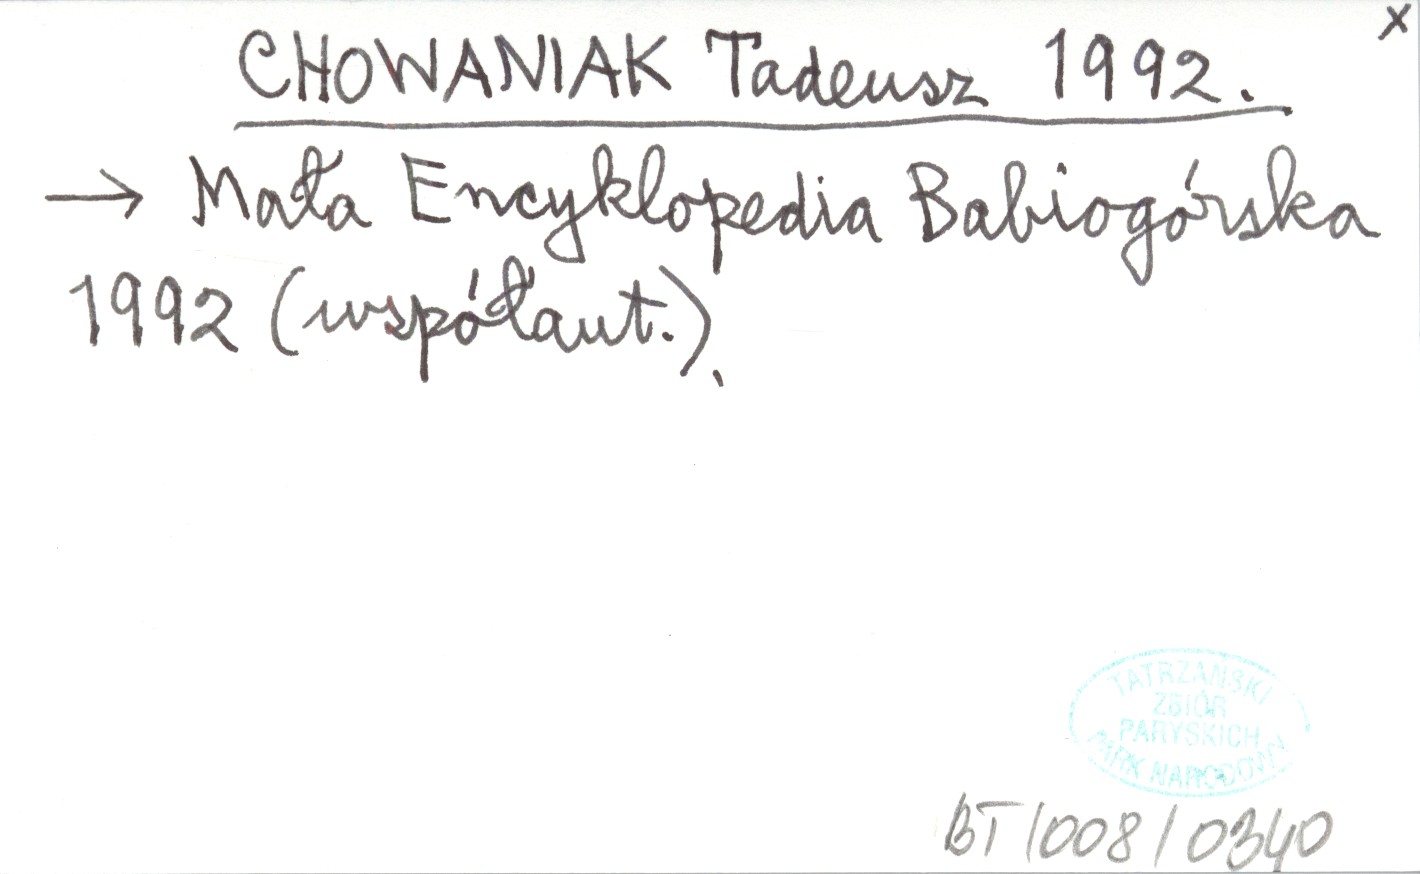 x
CHOWANIAK Tadeusz 1992.
→ Mała Encyklopedia Babiogórska
1992 (współaut.).
TATRZAŃSKI
ZBIÓR
PARYSKICH
PARK NARODOWY
BT/008/0340